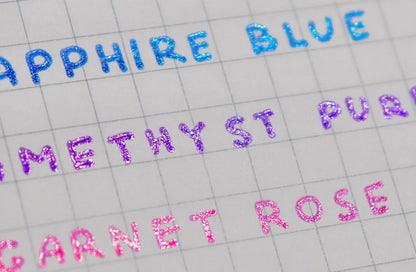 APPHIRE BLUE
AMETHYST PUR
GARNET ROSE